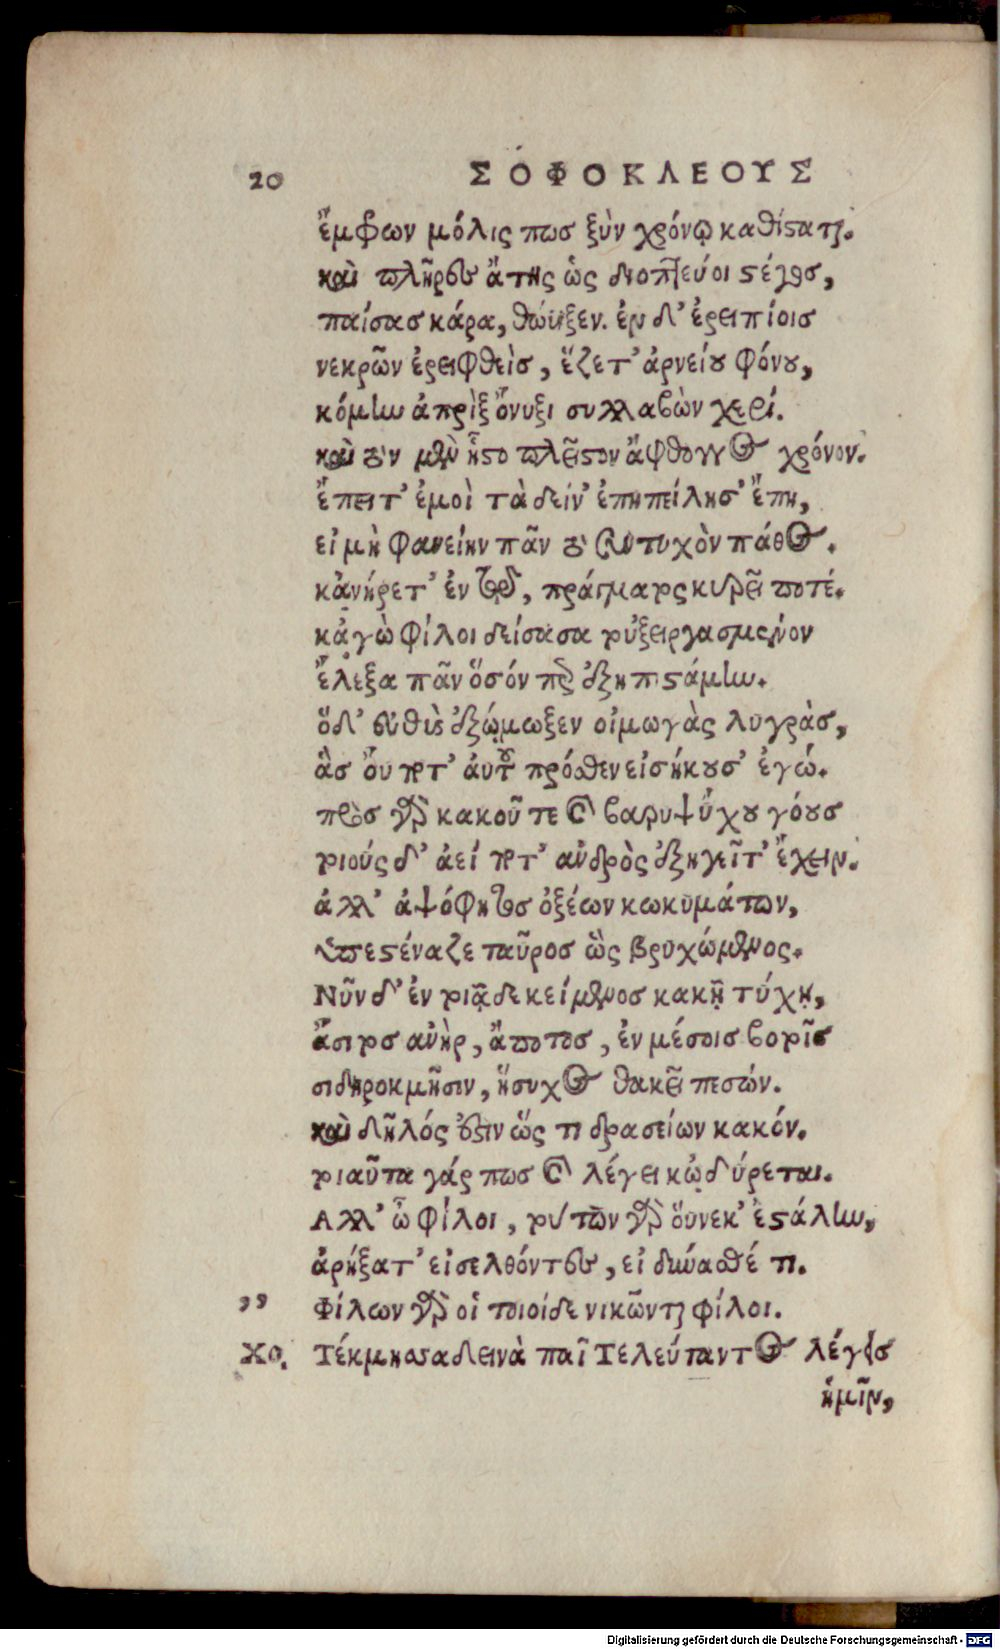 20 ΣΟΦΟΚΛΕΟΥΣ
ἔμφρων μόλις πωσ ξὺν χρόνῳ καθίσταται.
καὶ πλῆρες ἄτης ὡς διοπτεύει στέγος,
παίσασ κάρα, θώυξεν. ἐν δ' ἐρειπίοισ
νεκρῶν ἐρειφθεὶσ, ἕζετ' ἀρνείου φόνου,
κόμην ἀπρὶξ ὄνυξι συλλαβὼν χερί.
καὶ τὸν μὲν ἧστο πλεῖστον ἄφθογγος χρόνον.
ἔπειτ' ἐμοὶ τὰ δείν' ἐπηπείλησ' ἔπη,
εἰ μὴ φανείην πᾶν τὸ συντυχὸν πάθος.
κἀνήρετ' ἐν τῷ, πράγματος κυρεῖ ποτέ.
κἀγὼ φίλοι δείσασα τοὐξειργασμένον
ἔλεξα πᾶν ὅσόν περ ἐξηπιστάμην.
ὅδ' εὐθὺς ἐξῴμωξεν οἰμωγὰς λυγρὰσ,
ἃσ οὔ ποτ' ἀυτοῦ πρόσθεν εἰσήκουσ' ἐγώ.
πρὸσ γὰρ κακοῦ τε καὶ βαρυψύχου γόουσ
τοιούς δ' ἀεί ποτ' ἀνδρὸς ἐξηγεῖτ' ἔχειν.
ἀλλ' ἀψόφητοσ ὀξέων κωκυμάτων,
ὑπεστέναζε ταῦροσ ὣς βρυχώμενος.
Νῦν δ' ἐν τοιᾷδε κείμενοσ κακῇ τύχῃ,
ἄσιτοσ ἀνὴρ, ἄποτοσ, ἐν μέσοισ βοτοῖσ
σιδηροκμῆσιν, ἥσυχος θακεῖ πεσών.
καὶ δῆλός ἐστιν ὥς τι δρασείων κακόν.
τοιαῦτα γάρ πωσ καὶ λέγει κᾠδύρεται.
Αλλ' ὦ φίλοι, τούτων γὰρ οὕνεκ' ἐστάλην,
ἀρήξατ' εἰσελθόντες, εἰ δύνασθέ τι.
,, Φίλων γὰρ οἱ τοιοίδε νικῶνται φίλοι.
Χο. Τέκμησσα δεινὰ παῖ Τελεύταντος λέγεισ
ἡμῖν,
Digitalisierung gefördert durch die Deutsche Forschungsgemeinschaft - DFG